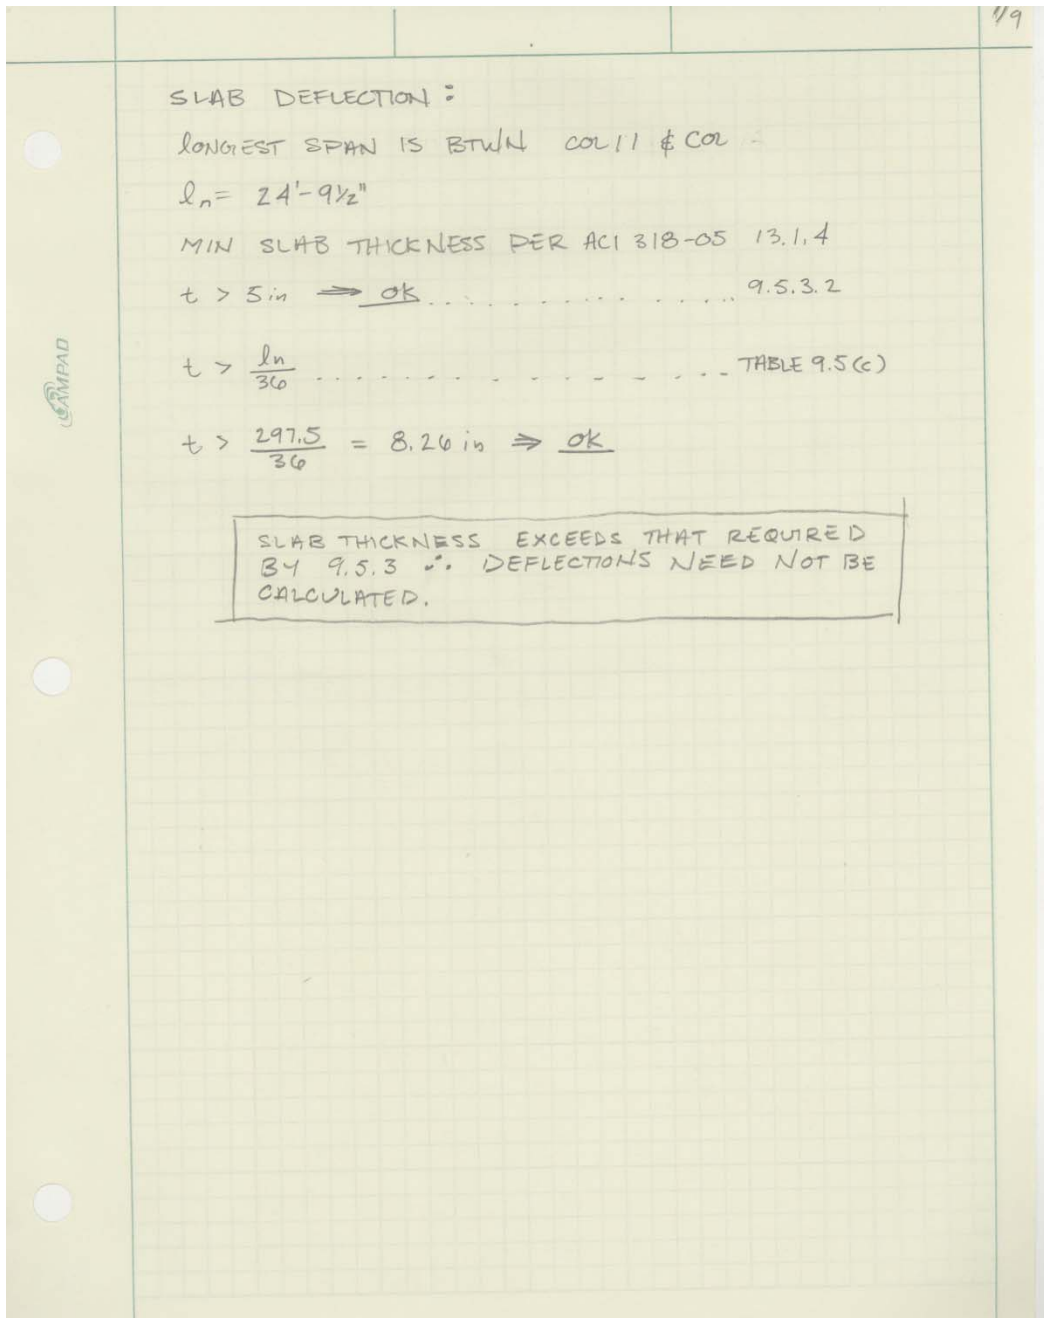 1/9
SLAB DEFLECTION:
lONGEST SPAN IS BTW/N COL 11 & COL
ln = 24'-9½"
MIN SLAB THICKNESS PER ACI 318-05 13.1.4
t > 5 in ⇒ OK .................. 9.5.3.2
t > ln/36 .................. TABLE 9.5(c)
t > 297.5/36 = 8.26 in ⇒ OK
SLAB THICKNESS EXCEEDS THAT REQUIRED
BY 9.5.3 ∴ DEFLECTIONS NEED NOT BE
CALCULATED.
AMPAD